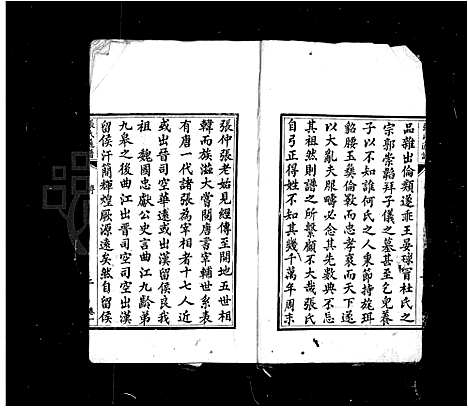 品雜出倫類遂乖王晏琭冒杜氏之
宗郭崇韜拜子儀之墓甚至乞兒養
子以不知誰何氏之人秉節持旄珥
貂腰玉彝倫斁而忠孝衰而天下遂
以大亂夫服疇必念其先數典不忘
其祖然則譜之所繫顧不大哉張氏
自弓正得姓不知其幾千萬年周末
張仲張老姑見經傳至開地五世相
韓而族滋大嘗閱唐書宰輔世系表
有唐一代諸張為宰相者十七人近
或出晉司空華遠或出漢留侯良我
祖 魏國忠獻公史言曲江九齡弟
九皋之後曲江出晉司空司空出漢
留侯汗簡輝煌厥源遠矣然自留侯
序
二
卷一